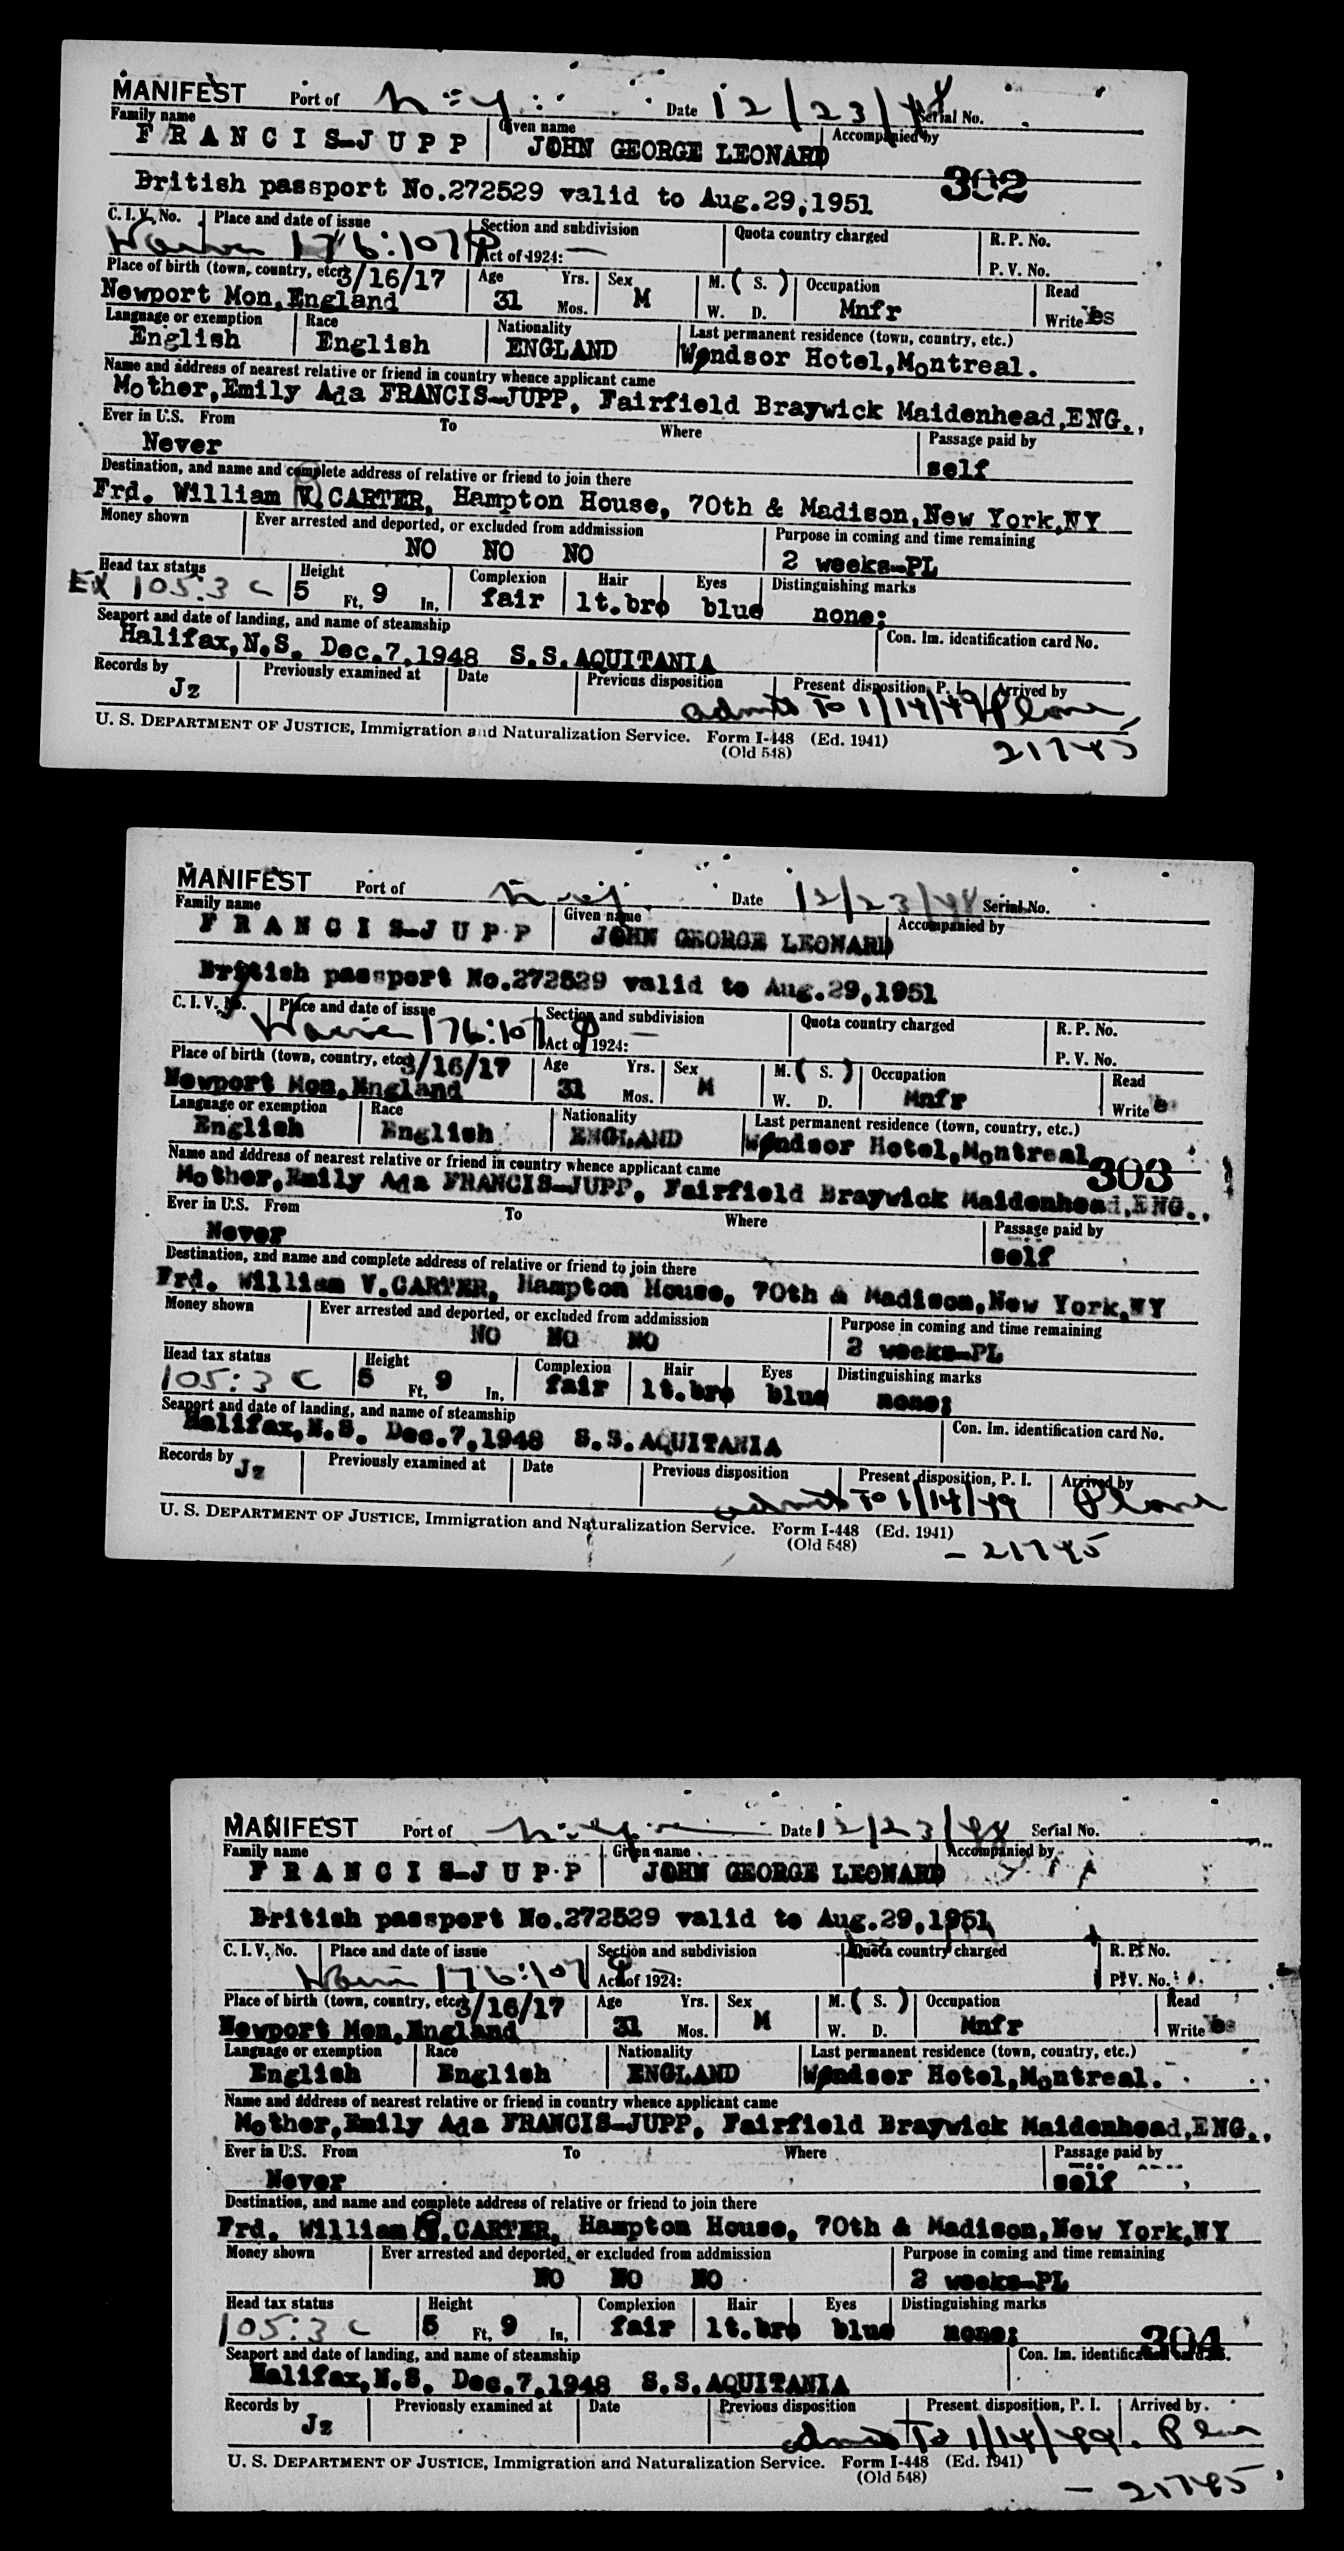 MANIFEST Port of N.Y. Date 12/23/48 Serial No.
Family name Given name Accompanied by
F R A N C I S-J U P P JOHN GEORGE LEONARD
302
British passport No.272529 valid to Aug.29,1951
C. I. V. No. Place and date of issue Section and subdivision Quota country charged R. P. No.
176:107 Act of 1924: — P. V. No.
Place of birth (town, country, etc.) 3/16/17 Age Yrs. Sex M. ( S. ) Occupation Read
Newport Mon,England 31 Mos. M W. D. Mnfr Write Yes
Language or exemption Race Nationality Last permanent residence (town, country, etc.)
English English ENGLAND Windsor Hotel,Montreal.
Name and address of nearest relative or friend in country whence applicant came
Mother,Emily Ada FRANCIS-JUPP, Fairfield Braywick Maidenhead,ENG.,
Ever in U.S. From To Where Passage paid by
Never self
Destination, and name and complete address of relative or friend to join there
Frd. William V.CARTER, Hampton House, 70th & Madison,New York,NY
Money shown Ever arrested and deported, or excluded from addmission Purpose in coming and time remaining
NO NO NO 2 weeks-PL
Head tax status Height Complexion Hair Eyes Distinguishing marks
Ex 105:3 C 5 Ft. 9 In. fair lt.bro blue none;
Seaport and date of landing, and name of steamship Con. Im. identification card No.
Halifax,N.S. Dec.7,1948 S.S.AQUITANIA
Records by Previously examined at Date Previous disposition Present disposition, P. I. Arrived by
Jz admit To 1/14/49 Plane
U. S. DEPARTMENT OF JUSTICE, Immigration and Naturalization Service. Form I-448 (Ed. 1941)
(Old 548) 21745
MANIFEST Port of N.Y. Date 12/23/48 Serial No.
Family name Given name Accompanied by
F R A N C I S-J U P P JOHN GEORGE LEONARD
British passport No.272529 valid to Aug.29,1951
C. I. V. No. Place and date of issue Section and subdivision Quota country charged R. P. No.
176:107 Act of 1924: — P. V. No.
Place of birth (town, country, etc.) 3/16/17 Age Yrs. Sex M. ( S. ) Occupation Read
Newport Mon,England 31 Mos. M W. D. Mnfr Write
Language or exemption Race Nationality Last permanent residence (town, country, etc.)
English English ENGLAND Windsor Hotel,Montreal
303
Name and address of nearest relative or friend in country whence applicant came
Mother,Emily Ada FRANCIS-JUPP, Fairfield Braywick Maidenhead,ENG.,
Ever in U.S. From To Where Passage paid by
Never self
Destination, and name and complete address of relative or friend to join there
Frd. William V.CARTER, Hampton House, 70th & Madison,New York,NY
Money shown Ever arrested and deported, or excluded from addmission Purpose in coming and time remaining
NO NO NO 2 weeks-PL
Head tax status Height Complexion Hair Eyes Distinguishing marks
105:3 C 5 Ft. 9 In. fair lt.bro blue none;
Seaport and date of landing, and name of steamship Con. Im. identification card No.
Halifax,N.S. Dec.7,1948 S.S.AQUITANIA
Records by Previously examined at Date Previous disposition Present disposition, P. I. Arrived by
Jz admit To 1/14/49 Plane
U. S. DEPARTMENT OF JUSTICE, Immigration and Naturalization Service. Form I-448 (Ed. 1941)
(Old 548) — 21745
MANIFEST Port of Date 12/23/48 Serial No.
Family name Given name Accompanied by
F R A N C I S-J U P P JOHN GEORGE LEONARD
British passport No.272529 valid to Aug.29,1951
C. I. V. No. Place and date of issue Section and subdivision Quota country charged R. P. No.
176:107 Act of 1924: P. V. No.
Place of birth (town, country, etc.) 3/16/17 Age Yrs. Sex M. ( S. ) Occupation Read
Newport Mon,England 31 Mos. M W. D. Mnfr Write Yes
Language or exemption Race Nationality Last permanent residence (town, country, etc.)
English English ENGLAND Windsor Hotel,Montreal.
Name and address of nearest relative or friend in country whence applicant came
Mother,Emily Ada FRANCIS-JUPP, Fairfield Braywick Maidenhead,ENG.,
Ever in U.S. From To Where Passage paid by
Never self
Destination, and name and complete address of relative or friend to join there
Frd. William V.CARTER, Hampton House, 70th & Madison,New York,NY
Money shown Ever arrested and deported, or excluded from addmission Purpose in coming and time remaining
NO NO NO 2 weeks-PL
Head tax status Height Complexion Hair Eyes Distinguishing marks
105:3 C 5 Ft. 9 In. fair lt.bro blue none;
304
Seaport and date of landing, and name of steamship Con. Im. identification card No.
Halifax,N.S. Dec.7,1948 S.S.AQUITANIA
Records by Previously examined at Date Previous disposition Present disposition, P. I. Arrived by
Jz admit To 1/14/49 Plane
U. S. DEPARTMENT OF JUSTICE, Immigration and Naturalization Service. Form I-448 (Ed. 1941)
(Old 548) — 21745